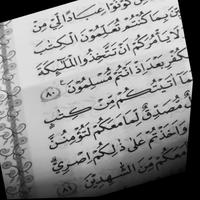 كُونُوا۟ عِبَادًا لِّى مِن
بِمَا كُنتُمْ تُعَلِّمُونَ ٱلْكِتَٰبَ
وَلَا يَأْمُرَكُمْ أَن تَتَّخِذُوا۟ ٱلْمَلَٰٓئِكَةَ
كُفْرِ بَعْدَ إِذْ أَنتُم مُّسْلِمُونَ ٨٠
مَآ ءَاتَيْتُكُم مِّن كِتَٰبٍ
مُّصَدِّقٌ لِّمَا مَعَكُمْ لَتُؤْمِنُنَّ
وَأَخَذْتُمْ عَلَىٰ ذَٰلِكُمْ إِصْرِى
مَعَكُم مِّنَ ٱلشَّٰهِدِينَ ٨١